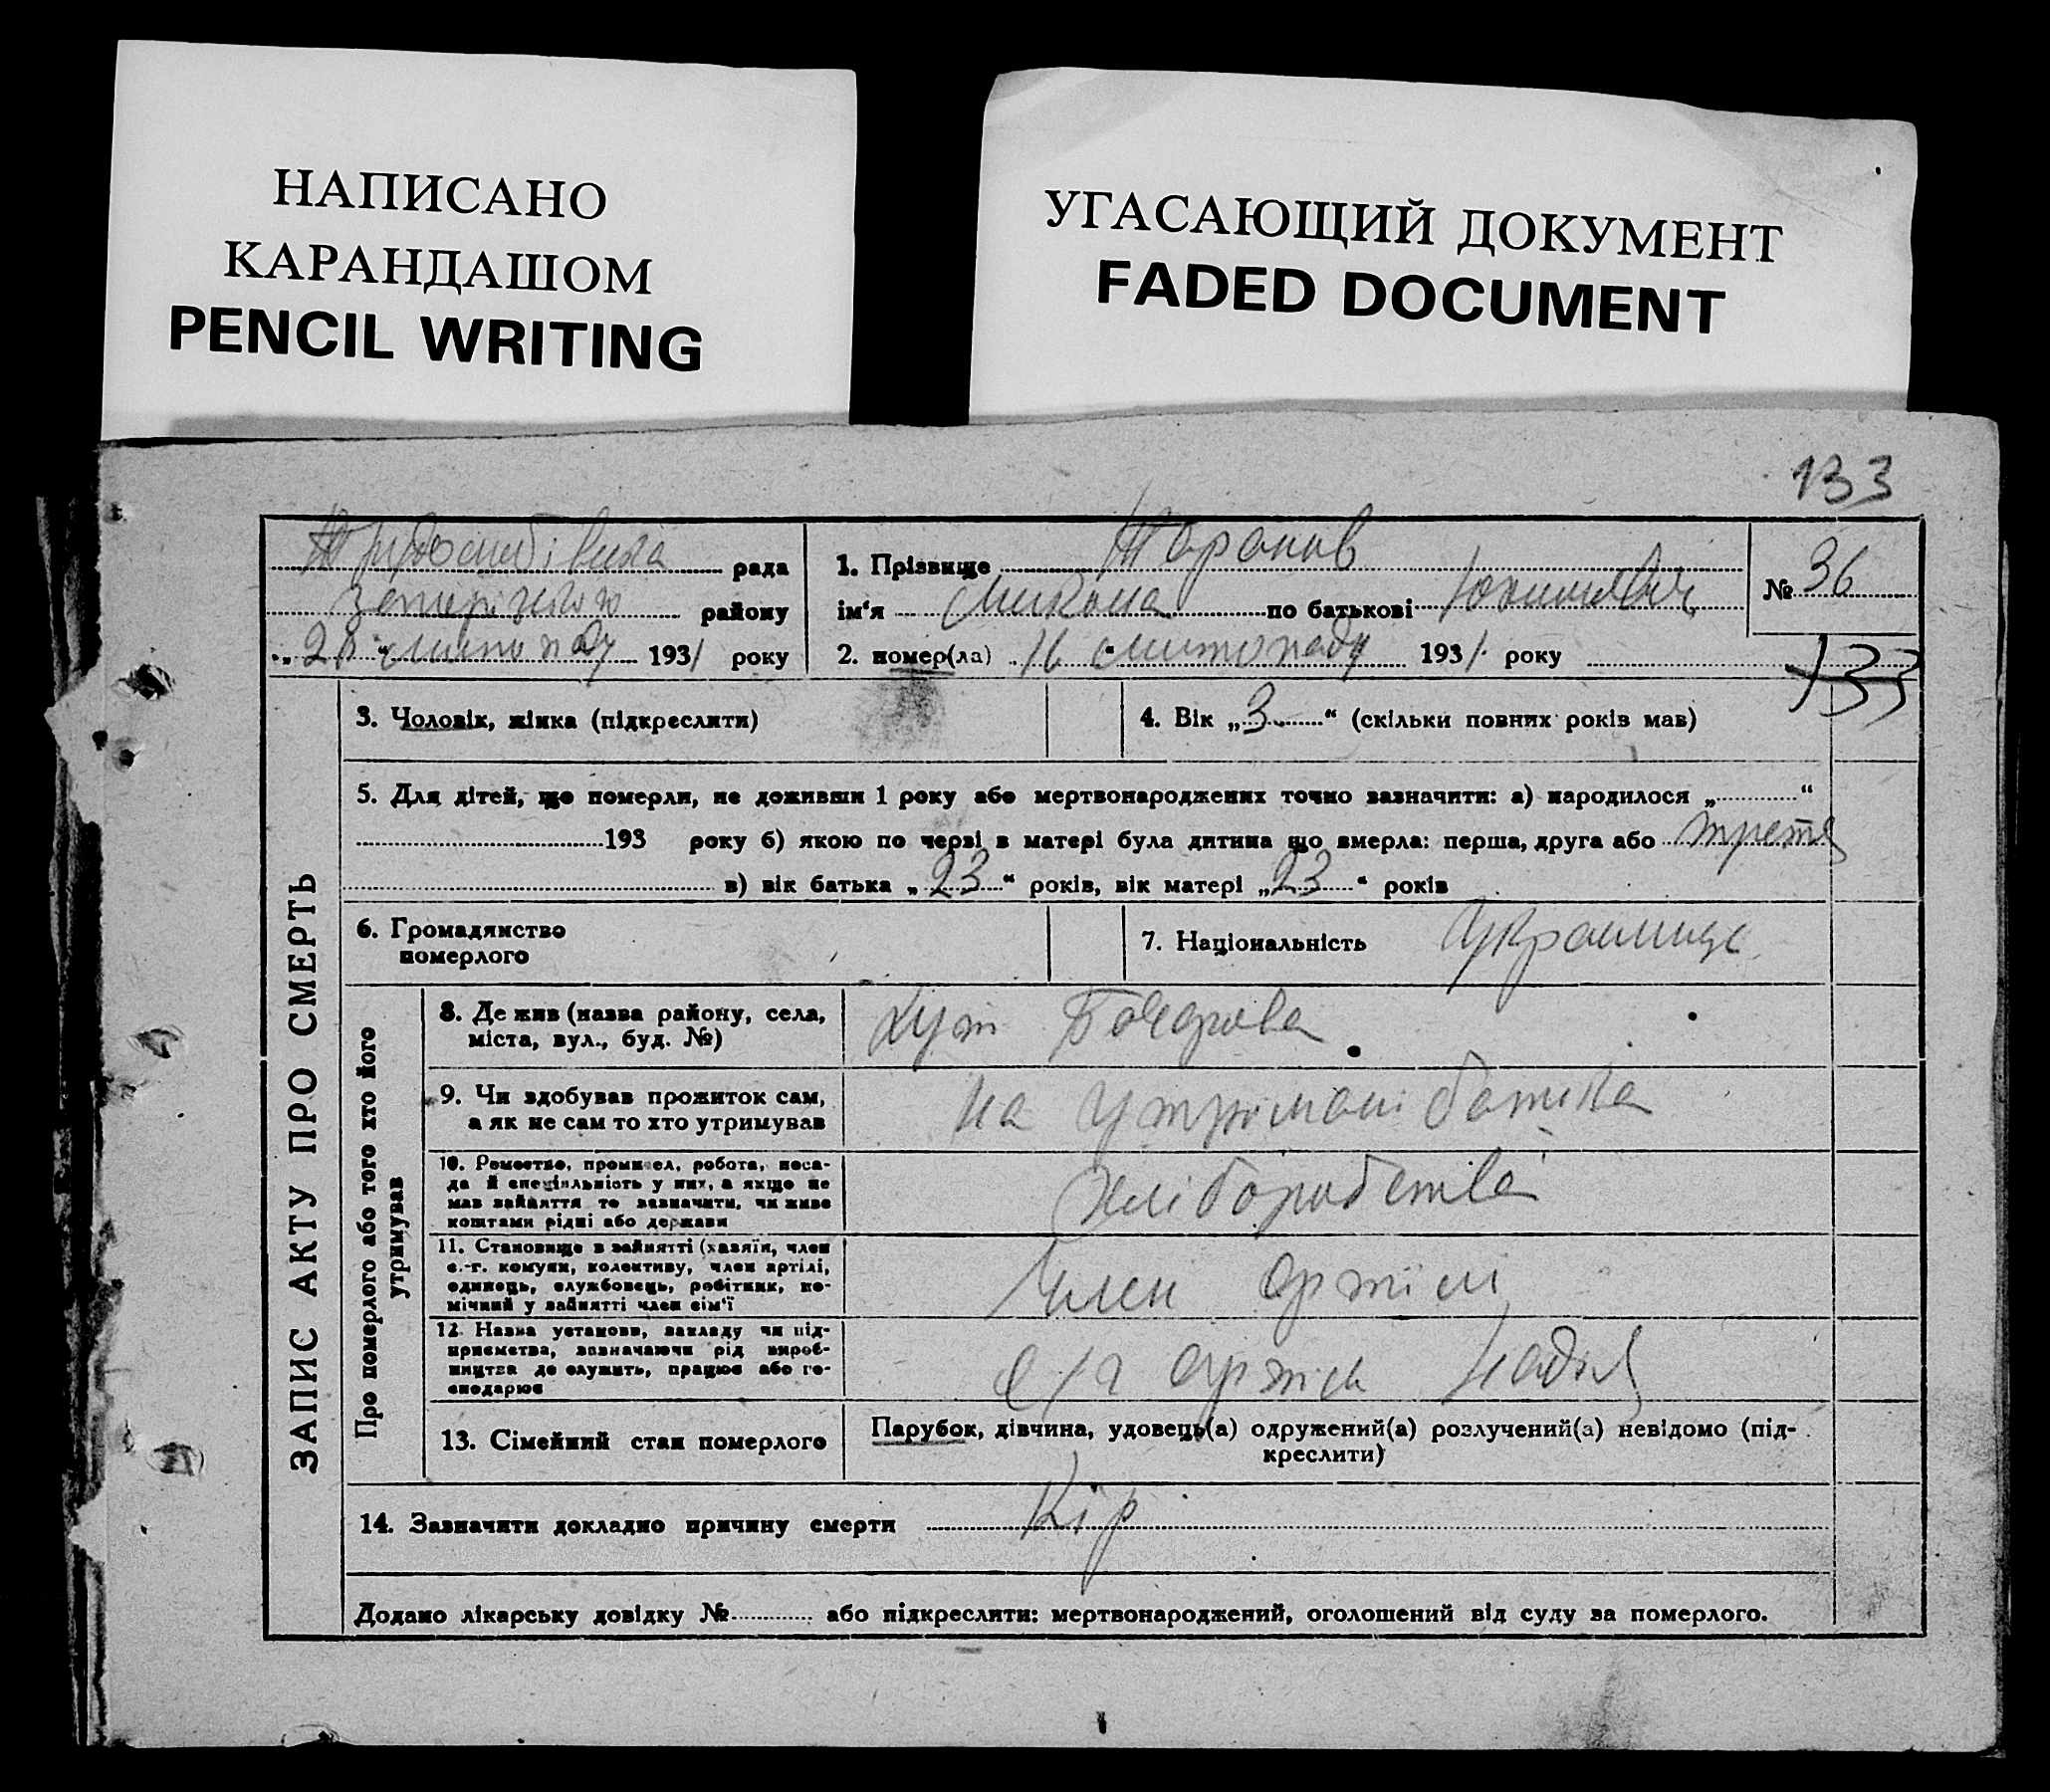 НАПИСАНО
КАРАНДАШОМ
PENCIL WRITING
УГАСАЮЩИЙ ДОКУМЕНТ
FADED DOCUMENT
133
рада
району
„ “ листопаду 1931 року
1. Прізвище Таранов
ім'я Микола по батькові
2. помер(ла) 16 листопаду 1931 року
№ 36
133
ЗАПИС АКТУ ПРО СМЕРТЬ
3. Чоловік, жінка (підкреслити)
4. Вік „3“ (скільки повних років мав)
5. Для дітей, що померли, не доживши 1 року або мертвонароджених точно зазначити: а) народилося „ “
193 року б) якою по черві в матері була дитина що вмерла: перша, друга або третя
в) вік батька „23“ років, вік матері „23“ років
6. Громадянство
померлого
7. Національність Украинце
Про померлого або того хто його
утримував
8. Де жив (назва району, села,
міста, вул., буд. №)
хут Бочарова
9. Чи здобував прожиток сам,
а як не сам то хто утримував
на утримані батька
10. Ремество, промисел, робота, поса-
да й спеціяльність у них, а якщо не
мав зайняття то зазначити, чи живе
коштами рідні або держави
хліборобства
11. Становище в зайнятті (хазяїн, член
с.-г. комуни, колективу, член артілі,
одинець, службовець, робітник, по-
мічний у зайнятті член сім'ї
Член артіли
12. Назва установи, закладу чи під-
приємства, зазначаючи рід вироб-
ництва де служить, працює або го-
сподарює
с/г артіль Надія
13. Сімейний стан померлого
Парубок, дівчина, удовець(а) одружений(а) розлучений(а) невідомо (під-
креслити)
14. Зазначити докладно причину смерти Кір
Додано лікарську довідку № або підкреслити: мертвонароджений, оголошений від суду за померлого.